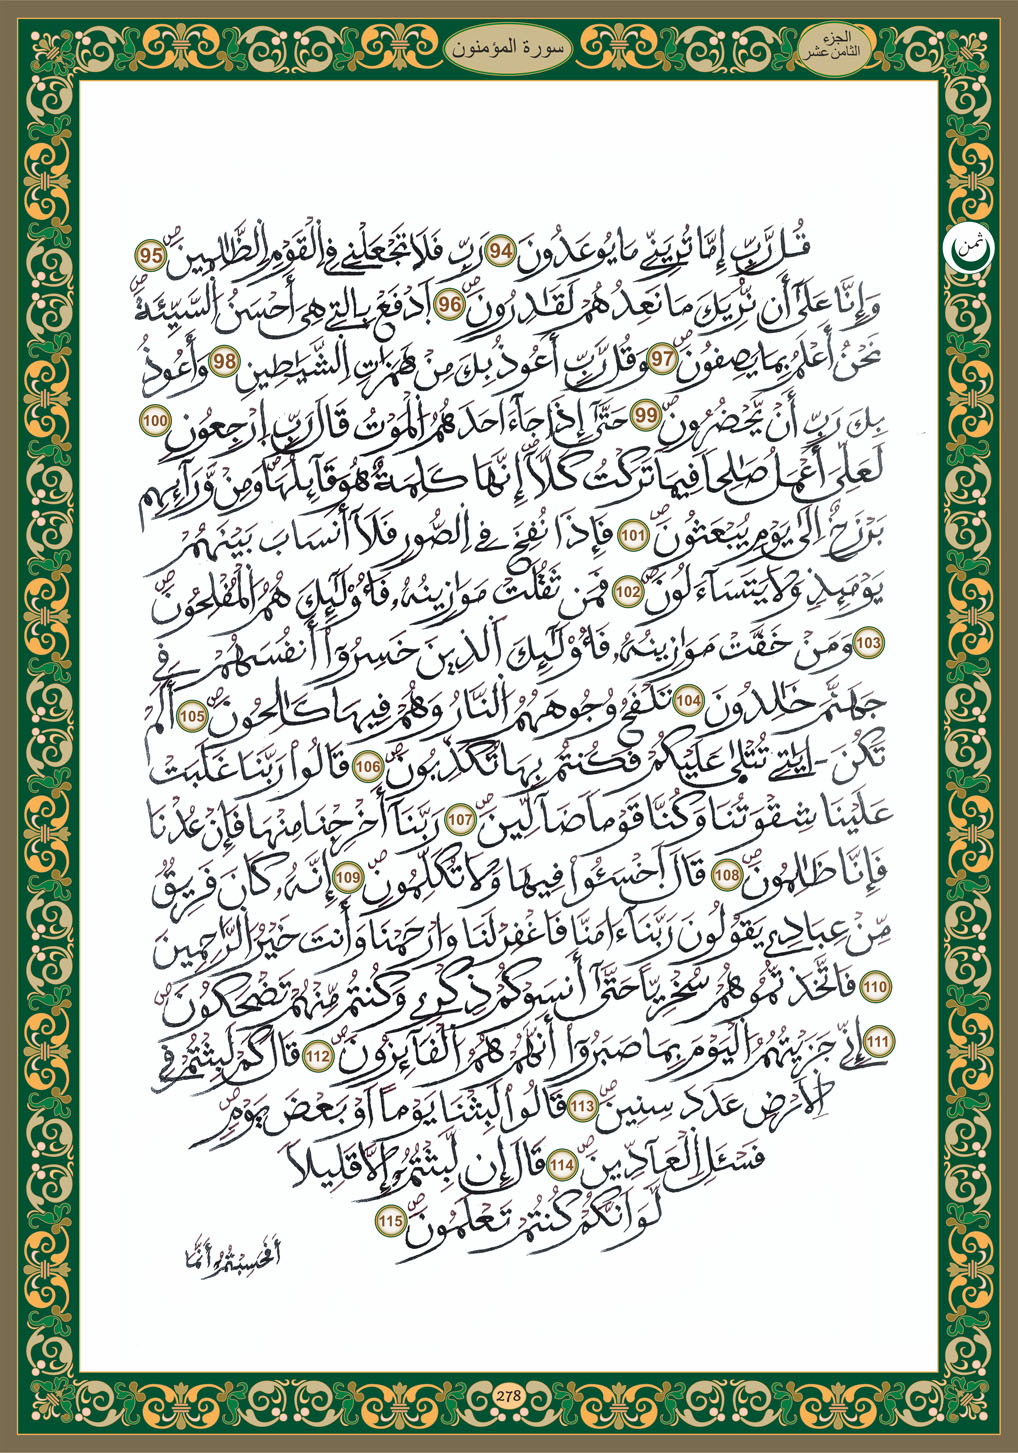 سورة المؤمنون
الجزء
الثامن عشر
ثمن
قُل رَّبِّ إِمَّا تُرِيَنِّے مَا يُوعَدُونَ 94 رَبِّ فَلَا تَجْعَلْنِے فِے اِلْقَوْمِ اِلظَّٰلِمِينَ صۖ 95
وَإِنَّا عَلَىٰٓ أَن نُّرِيَكَ مَا نَعِدُهُمْ لَقَٰدِرُونَ صۖ 96 اَدْفَعْ بِالتِے هِىَ أَحْسَنُ اُلسَّيِّئَةَ صۖ
نَحْنُ أَعْلَمُ بِمَا يَصِفُونَ صۖ 97 وَقُل رَّبِّ أَعُوذُ بِكَ مِنْ هَمَزَٰتِ اِلشَّيَٰطِينِ 98 وَأَعُوذُ
بِكَ رَبِّ أَنْ يَّحْضُرُونِ صۖ 99 حَتَّىٰٓ إِذَا جَآءَ احَدَهُمُ اُلْمَوْتُ قَالَ رَبِّ اِرْجِعُونِ صۖ 100
لَعَلِّىَ أَعْمَلُ صَٰلِحاً فِيمَا تَرَكْتُ كَلَّآ صۖ إِنَّهَا كَلِمَةٌ هُوَ قَآئِلُهَا صۖ وَمِنْ وَّرَآئِهِم
بَرْزَخٌ اِلَىٰ يَوْمِ يُبْعَثُونَ صۖ 101 فَإِذَا نُفِخَ فِے اِلصُّورِ فَلَآ أَنسَابَ بَيْنَهُمْ
يَوْمَئِذٍ وَلَا يَتَسَآءَلُونَ صۖ 102 فَمَن ثَقُلَتْ مَوَٰزِينُهُۥ فَأُوْلَٰٓئِكَ هُمُ اُلْمُفْلِحُونَ صۖ
103 وَمَنْ خَفَّتْ مَوَٰزِينُهُۥ فَأُوْلَٰٓئِكَ اَلذِينَ خَسِرُوٓاْ أَنفُسَهُمْ فِے
جَهَنَّمَ خَٰلِدُونَ 104 تَلْفَحُ وُجُوهَهُمُ اُلنَّارُ وَهُمْ فِيهَا كَٰلِحُونَ صۖ 105 أَلَمْ
تَكُنَ ـ ايَٰتِے تُتْلَىٰ عَلَيْكُمْ فَكُنتُم بِهَا تُكَذِّبُونَ صۖ 106 قَالُواْ رَبَّنَا غَلَبَتْ
عَلَيْنَا شِقْوَتُنَا وَكُنَّا قَوْماً ضَآلِّينَ صۖ 107 رَبَّنَآ أَخْرِجْنَا مِنْهَا فَإِنْ عُدْنَا
فَإِنَّا ظَٰلِمُونَ صۖ 108 قَالَ اَخْسَـُٔواْ فِيهَا وَلَا تُكَلِّمُونِ صۖ 109 إِنَّهُۥ كَانَ فَرِيقٌ
مِّنْ عِبَادِے يَقُولُونَ رَبَّنَآ ءَامَنَّا فَاغْفِرْ لَنَا وَارْحَمْنَا وَأَنتَ خَيْرُ اُلرَّٰحِمِينَ
110 فَاتَّخَذتُّمُوهُمْ سُخْرِيّاً حَتَّىٰٓ أَنسَوْكُمْ ذِكْرِے وَكُنتُم مِّنْهُمْ تَضْحَكُونَ صۖ
111 إِنِّے جَزَيْتُهُمُ اُلْيَوْمَ بِمَا صَبَرُوٓاْ أَنَّهُمْ هُمُ اُلْفَآئِزُونَ صۖ 112 قَالَ كَمْ لَبِثْتُمْ فِے
اِلْأَرْضِ عَدَدَ سِنِينَ صۖ 113 قَالُواْ لَبِثْنَا يَوْماً اَوْ بَعْضَ يَوْمٍ صۖ
فَسْـَٔلِ اِلْعَآدِّينَ صۖ 114 قَالَ إِن لَّبِثْتُمُۥٓ إِلَّا قَلِيلاً
لَّوَ اَنَّكُمْ كُنتُمْ تَعْلَمُونَ صۖ 115
أَفَحَسِبْتُمُۥٓ أَنَّمَا
278